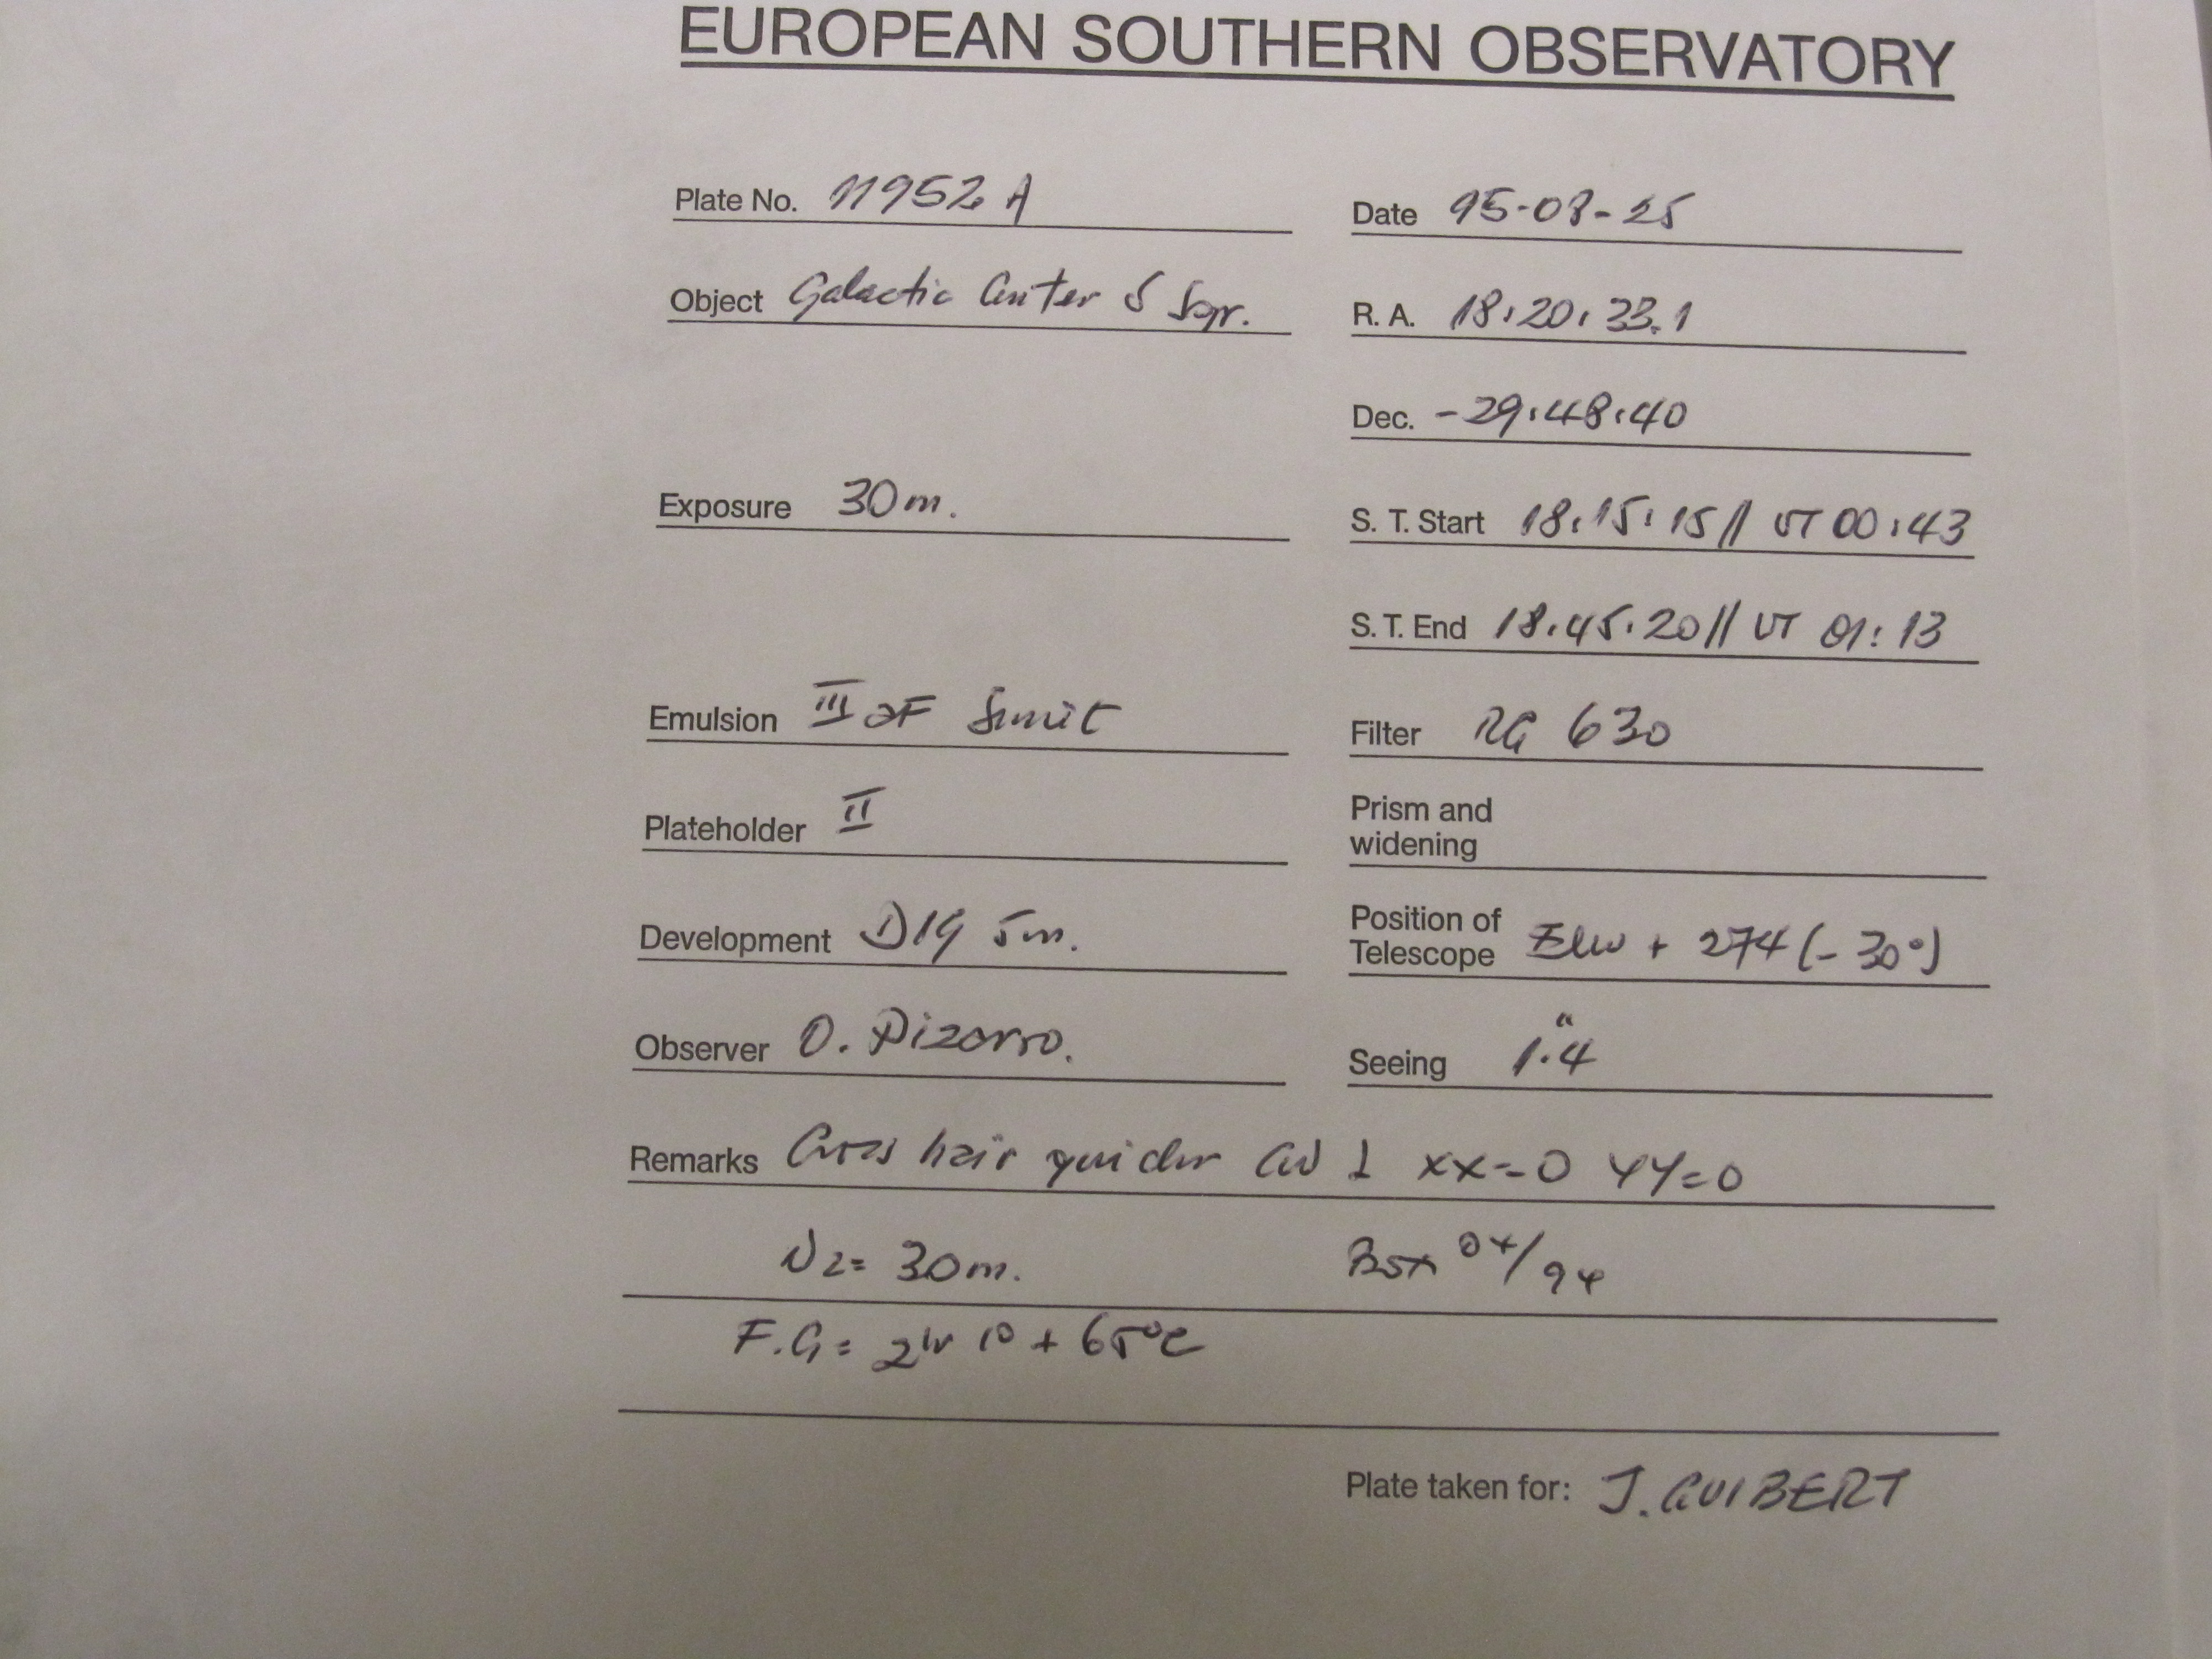 EUROPEAN SOUTHERN OBSERVATORY
Plate No. 11952 A
Date 95-08-25
Object Galactic Center S Sgr.
R. A. 18:20:33.1
Dec. -29:48:40
Exposure 30 m.
S. T. Start 18:15:15 // UT 00:43
S. T. End 18:45:20 // UT 01:13
Emulsion III aF
Filter RG 630
Plateholder II
Prism and widening
Development D19 5m.
Position of Telescope + 274 (-30°)
Observer O. Pizarro.
Seeing 1."4
Remarks Cross hair guider xx=0 YY=0
N2= 30m. Box 04/94
F.G= 2hr 10 + 65°C
Plate taken for: J. GUIBERT